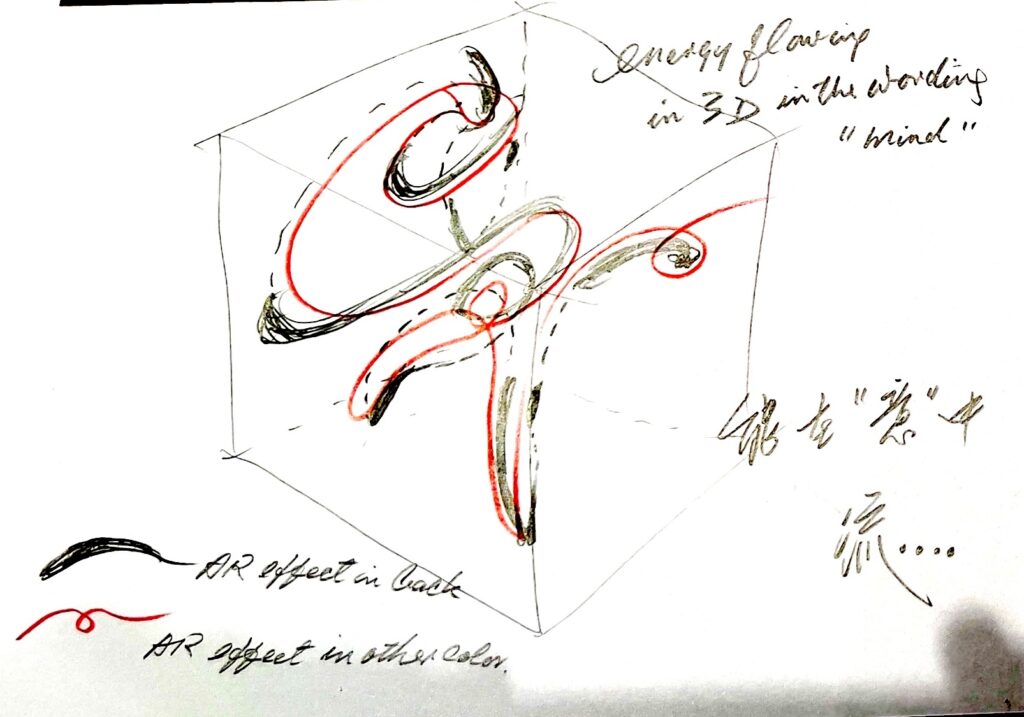 energy flowing
in 3D in the wording
"mind"
能在"意"中
流....
AR effect in back
AR effect in other color.